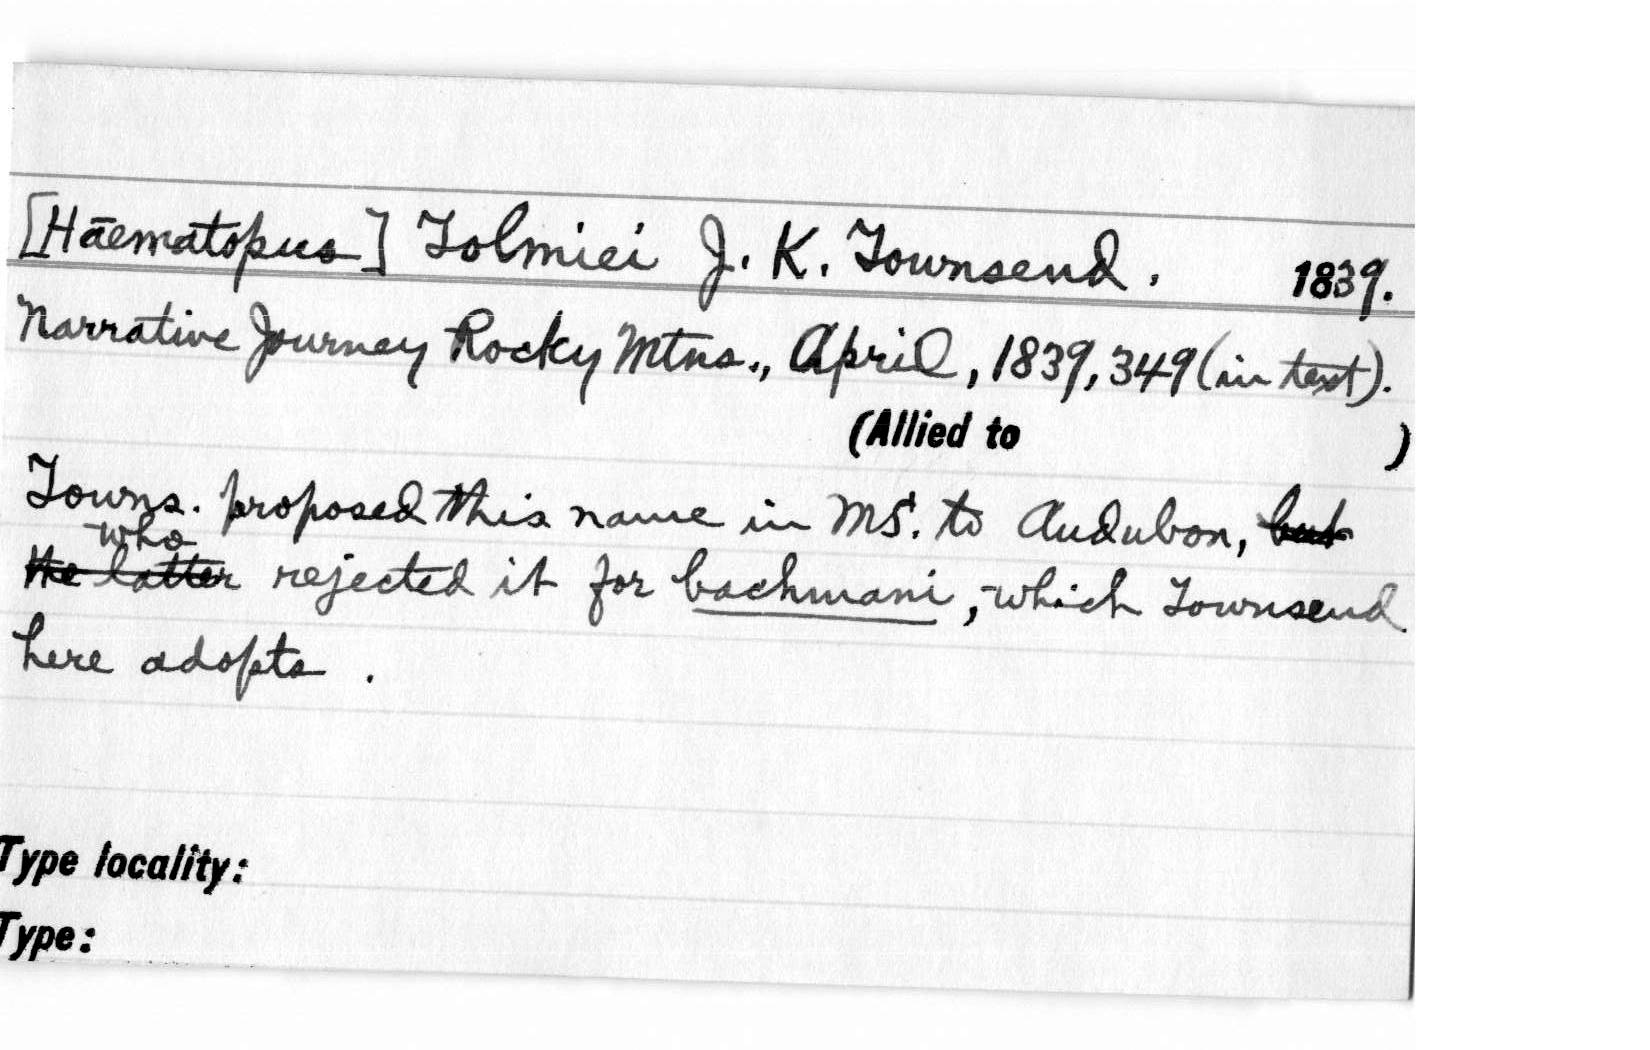 [Hāematopus] Tolmiei J. K. Townsend. 1839.
Narrative Journey Rocky Mtns., April, 1839, 349 (in text).
(Allied to )
Towns. proposed this name in MS. to Audubon, but
who
the latter rejected it for bachmani, which Townsend
here adopts.
Type locality:
Type: